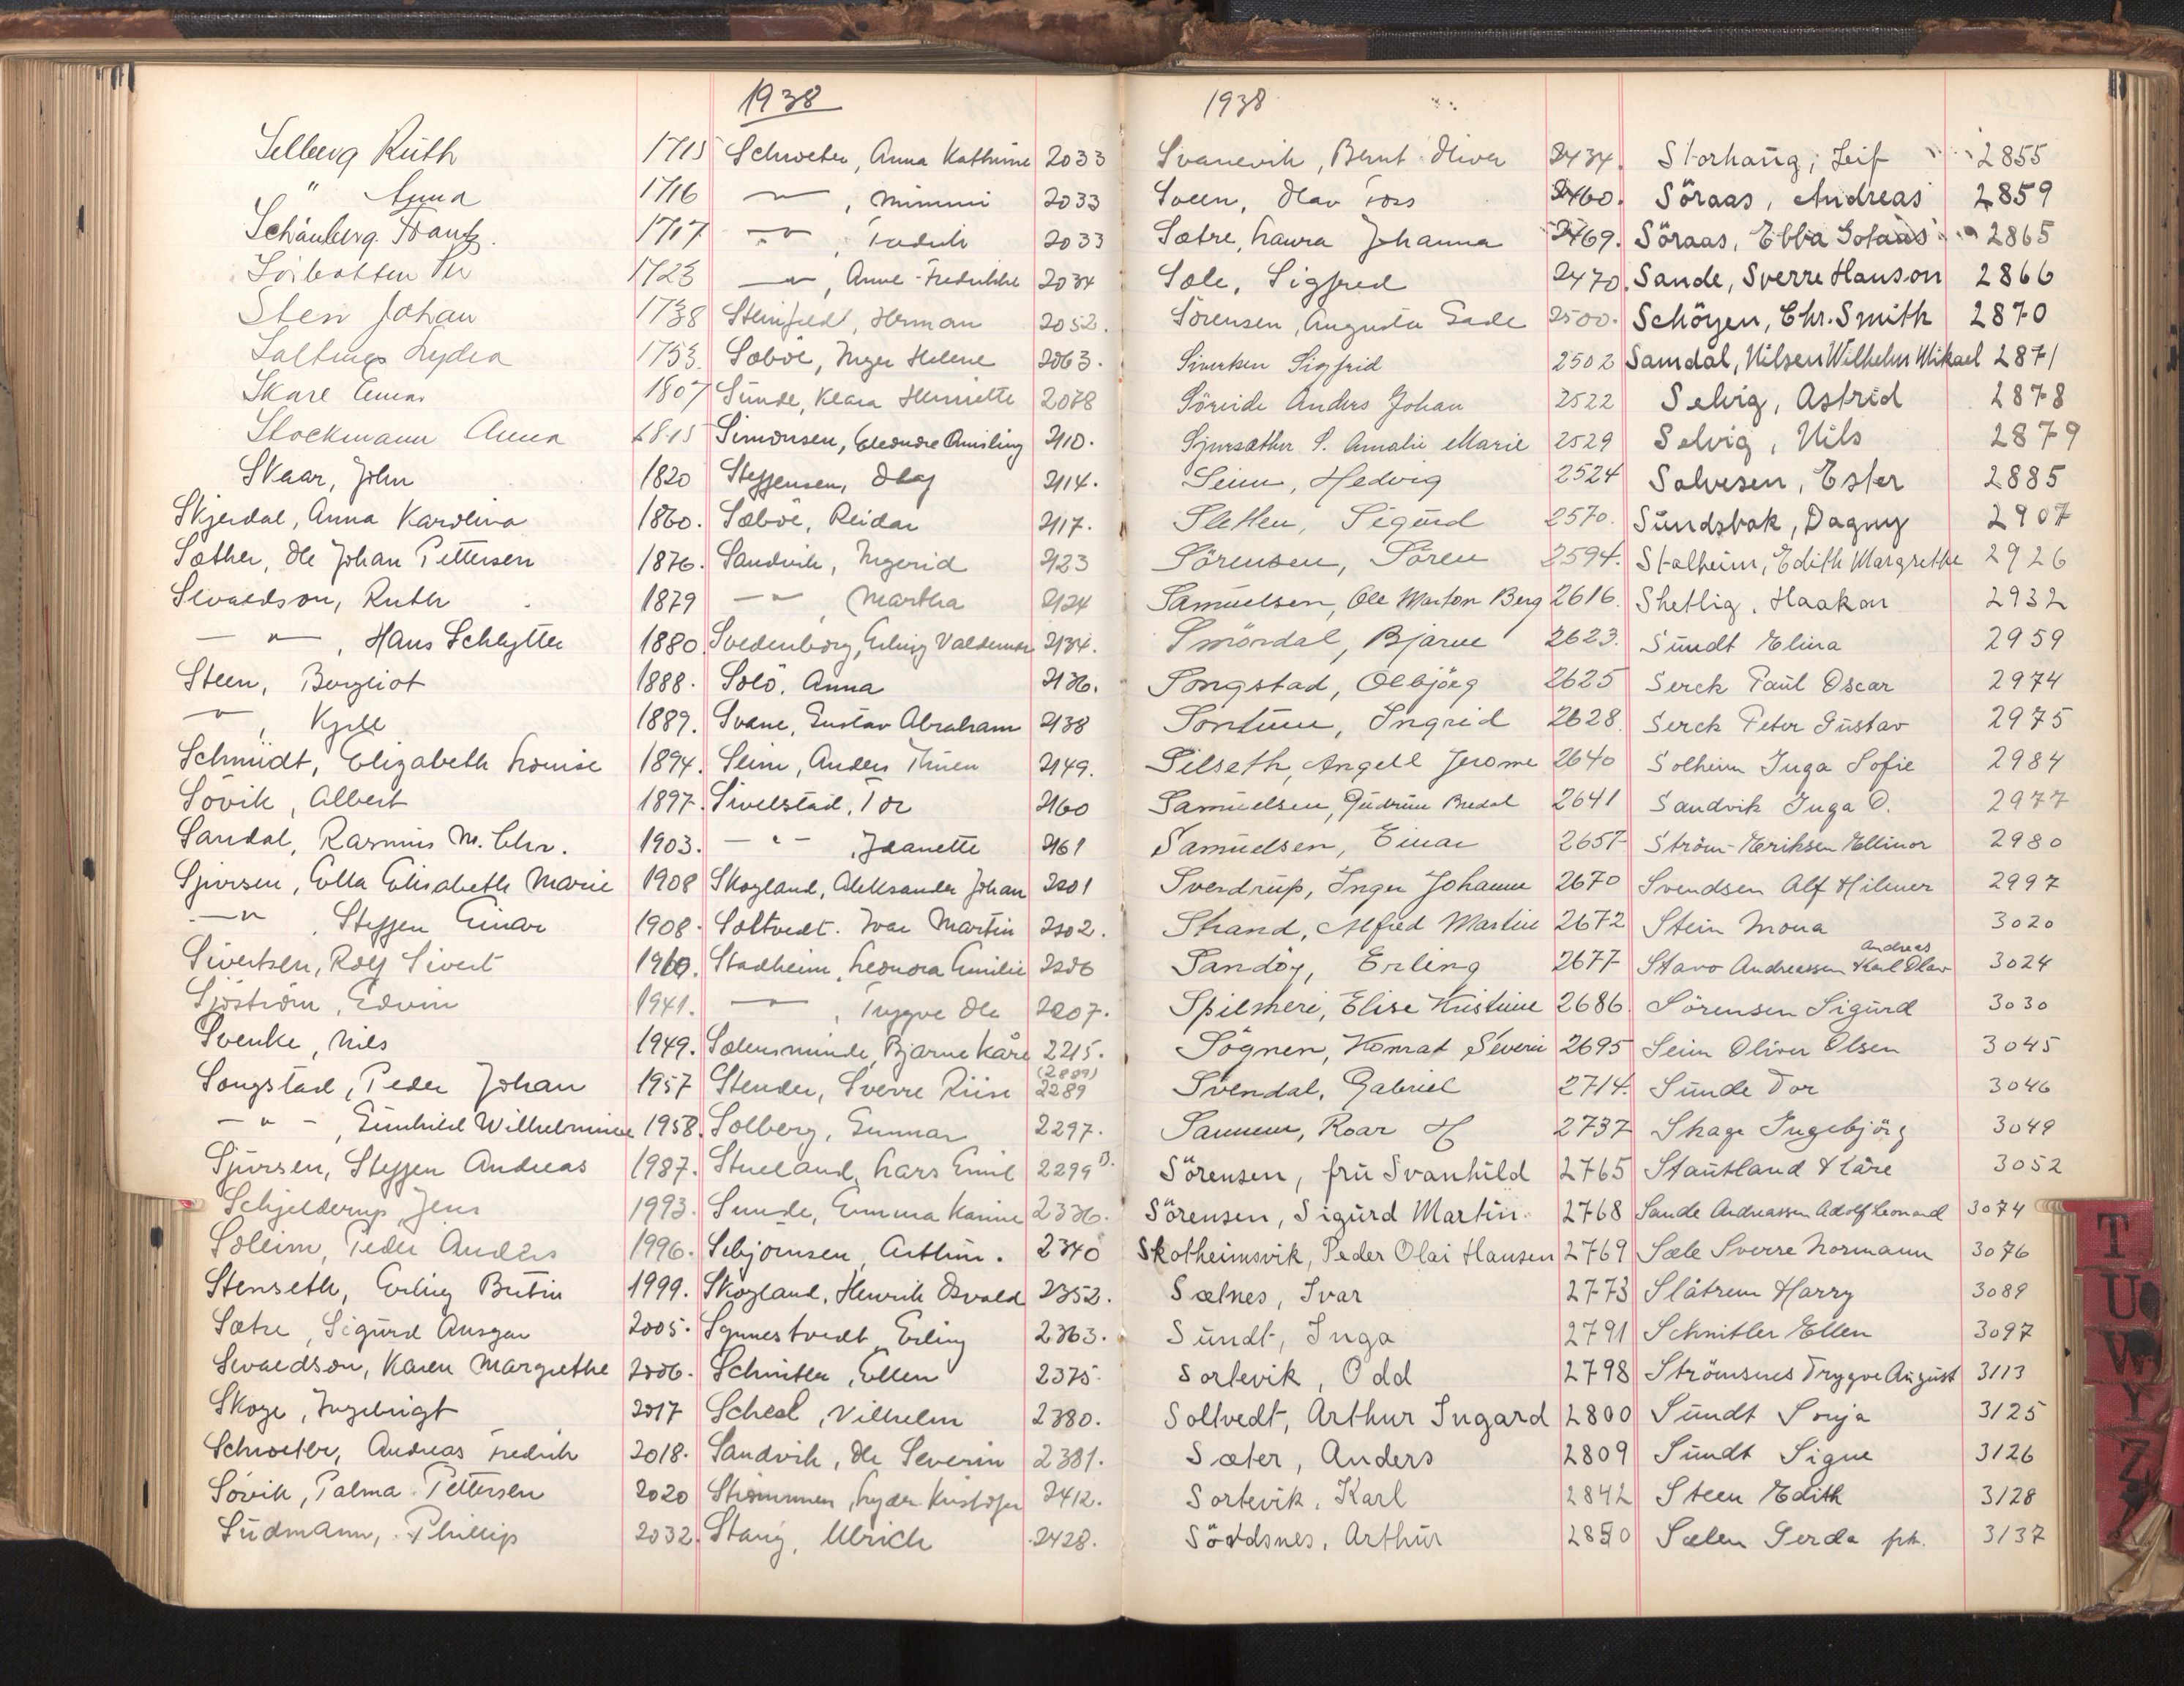 1938
Selberg Ruth 1715
" Anna 1716
Schånberg Frantz. 1717
1723
Sten Johan 1738
Lydia 1753.
Skare Einar 1807
Stockmann Anna 1815
Skaar, John 1820
Skjerdal, Anna Karolina 1860.
Sæther, Ole Johan Pettersen 1876.
Sivaldson, Ruth 1879
— " —, Hans Schlytter 1880
Steen, Bergliot 1888.
— " —, Kjell 1889.
Schmidt, Elizabeth Louise 1894.
Sövik, Albert 1897.
Sandal, Rasmus M. Chr. 1903.
Sjursen, Ella Elisabeth Marie 1908
— " —, Steffen Einar 1908.
Sivertsen, Rolf Sivert 1910.
Sjöström, Edvin 1941.
Svenke, Nils 1949.
Songstad, Peder Johan 1957
— " —, Gunhild Wilhelmine 1958.
Sjursen, Steffen Andreas 1987.
Schjelderup Jens 1993.
Solheim, Peder Anders 1996.
Stenseth, Erling 1999.
Sætre, Sigurd Ansgar 2005.
Sivaldson, Karen Margrethe 2006.
Skoge, Ingebrigt 2017
Schroeter, Andreas Fredrik 2018.
Sövik, Palma Pettersen 2020
Südmann, Phillip 2032.
Schroeter, Anna Kathrine 2033
— " —, Mimmi 2033
— " —, Fredrik 2033
— " —, Anne-Fredrikke 2034
Steinfeldt, Herman 2052.
Sæböe, Inger Helene 2063.
Sunde, Klara Henriette 2078
Simonsen, Eleonore 2110.
Steffensen, Olaf 2114.
Sæböe, Reidar 2117.
Sandvik, Ingerid 2123
— " —, Martha 2124
Svedenborg, Erling Valdemar 2134.
Solö, Anna 2136.
Svane, Gustav Abraham 2138
Seim, Anders Thuen 2149.
Sivelstad, Tor 2160
— " —, Jeanette 2161
Skogland, Aleksander Johan 2201
Soltvedt. Ivar Martin 2202.
Stadheim, Leonora Emilie 2206
— " —, Trygve Ole 2207.
Sælensminde, Bjarne Kåre 2215.
Stender, Sverre Riise (2889) 2289
Solberg, Gunnar 2297.
Stueland, Lars Emil 2299 B.
Sunde, Emma Karine 2336.
Sebjörnsen, Arthur. 2340
Skogland, Henrik Osvald 2352.
Synnestvedt, Erling 2363.
Schnitler, Ellen 2375.
Scheel, Vilhelm 2380.
Sandvik, Ole Severin 2381.
Strömmen, Lyder Kristofer 2412.
Stang, Ulrich 2428.
1938
Svanevik, Bernt Oliver 2434.
Sveen, Olav Foss 2460.
Sætre, Laura Johanna 2469.
Sæle, Sigfred 2470.
Sörensen, Augusta Gade 2500.
Sivertsen Sigfrid 2502
Söreide Anders Johan 2522
Sjursæther S. Amalie Marie 2529
Seim, Hedvig 2524
Sletten, Sigurd 2570.
Sörensen, Sören 2594.
Samuelsen, Ole Marton Berg 2616.
Smördal, Bjarne 2623.
Songstad, Olbjörg 2625
Sontum, Ingrid 2628.
Silseth, Angell Jerome 2640
Samuelsen, Gudrun Bredal 2641
Samuelsen, Einar 2657
Sverdrup, Inger Johanne 2670
Strand, Alfred Martin 2672
Sandöy, Erling 2677
Spilmeri, Elise Kristine 2686.
Sögnen, Konrad Severin 2695
Svendal, Gabriel 2714.
Sannem, Roar H 2737
Sörensen, fru Svanhild 2765
Sörensen, Sigurd Martin. 2768
Skotheimsvik, Peder Olai Hansen 2769
Sælnes, Ivar 2773
Sundt, Inga 2791
Sortevik, Odd 2798
Soltvedt, Arthur Ingard 2800
Sæter, Anders 2809
Sortevik, Karl 2842
Arthur 2850
Storhaug, Leif 2855
Söraas, Andreas 2859
Söraas, Ebba 2865
Sande, Sverre Hanson 2866
Schöyen, Chr. Smith 2870
Samdal, Nilsen Wilhelm Mikael 2871
Selvig, Astrid 2878
Selvig, Nils 2879
Salvesen, Ester 2885
Sundsbak, Dagny 2907
Stalheim, Edith Margrethe 2926
Shetlig, Haakon 2932
Sundt Elina 2959
Serck Paul Oscar 2974
Serck Peter Gustav 2975
Solheim Inga Sofie 2984
Sandvik Inga O. 2977
Ström-Eeriksen Ellinor 2980
Svendsen Alf Hilmer 2997
Stein Mona 3020
Stavo Andreassen Karl Olav Andreas 3024
Sörensen Sigurd 3030
Seim Oliver Olsen 3045
Sunde Tor 3046
Skage Ingebjörg 3049
Stautland Kåre 3052
Sande Andreassen Adolf Leonard 3074
Sæle Sverre Normann 3076
Slåtrem Harry 3089
Schnitler Ellen 3097
Strömsnes Trygve August 3113
Sundt Sonja 3125
Sundt Signe 3126
Steen Edith 3128
Sælen Gerda frk. 3137
T
U
W
Y
Z